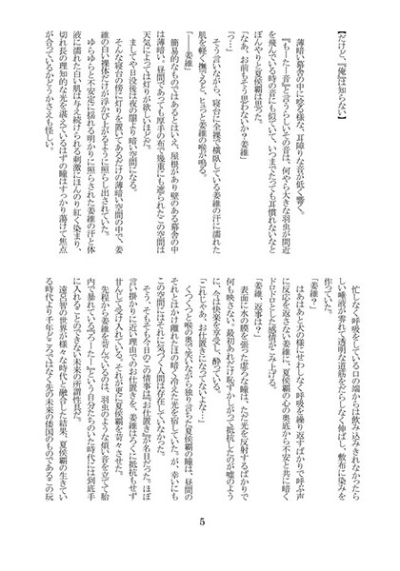 【だけど、『俺』は知らない】
　薄暗い幕舎の中に唸る様な、耳障りな音が低く響く。
『もーたー音』と言うらしいその音は、何やら大きな羽虫が間近
を飛んでいる時の音にも似ていて、いつまでたっても耳慣れないなと
ぼんやりと夏侯覇は思った。
「なあ、お前もそう思わないか？姜維」
「っ…」
　そう言いながら、寝台に全裸で横臥している姜維の汗に濡れた
肌を軽く撫ぜると、ヒュっと姜維の喉が鳴る。
「――姜維」
　簡易的なものではあるとはいえ、屋根があり壁のある幕舎の中
は薄暗い。昼間であっても厚手の布で幾重にも遮られたこの空間は
天気によっては灯りが欲しいほどだ。
　ましてや日没後は夜の闇より暗い空間になる。
　そんな寝台の傍に灯りを置いてあるだけの薄暗い空間の中で、姜
維の白い裸体だけが浮かび上がるように照らし出されていた。
　ゆらゆらと不安定に揺れる明かりに照らされた姜維の汗と体
液に濡れた白い肌は与え続けられる刺激にほんのり紅く染まり、
切れ長の理知的な光を湛えているはずの瞳はすっかり蕩けて焦点
が合っているかどうかさえも怪しい。
　忙しなく呼吸をしている口の端からは飲み込みきれなかったら
しい唾液が零れて透明な道筋をだらしなく伸ばし、敷布に染みを
作っていた。
「姜維？」
　はあはあと犬の様にせわしなく呼吸を繰り返すばかりで呼ぶ声
に反応を返さない姜維に、夏侯覇の心の奥底から不安と共に暗く
ドロドロとした感情がこみ上げる。
「姜維、返事は？」
　表面に水の膜を張った虚ろな瞳は、ただ光を反射するばかりで
何も映さない。最初あれだけ恥ずかしがって抵抗したのが嘘のよう
に、今は快楽を享受し、酔っている。
「これじゃあ、お仕置きになってないよなー」
　くつくつと喉の奥で笑いながら独り言った夏侯覇の瞳は、昼間の
それとはかけ離れたほの暗く冷えた光を宿していた。が、幸いにも
この空間にはそれに気づく人間は存在していなかった。
　そう、そもそも今日のこの情事は『お仕置き』が名目だった。ほぼ
言い掛かりに近い理由でのお仕置きを、姜維はろくに抵抗もせず
甘んじて受け入れている。それが更に夏侯覇を苛々させた。
　先程から姜維を苛んでいるのは、羽虫のような煩い音を立てて胎
内で暴れている『ろーたー』という自分たちのいた時代には到底手
に入れることのできない未来の所謂性具だ。
　遠呂智の世界が様々な時代と融合した結果、夏侯覇の生きてい
る時代より千年どころではなく先の未来の倭国のものであるこの玩
5